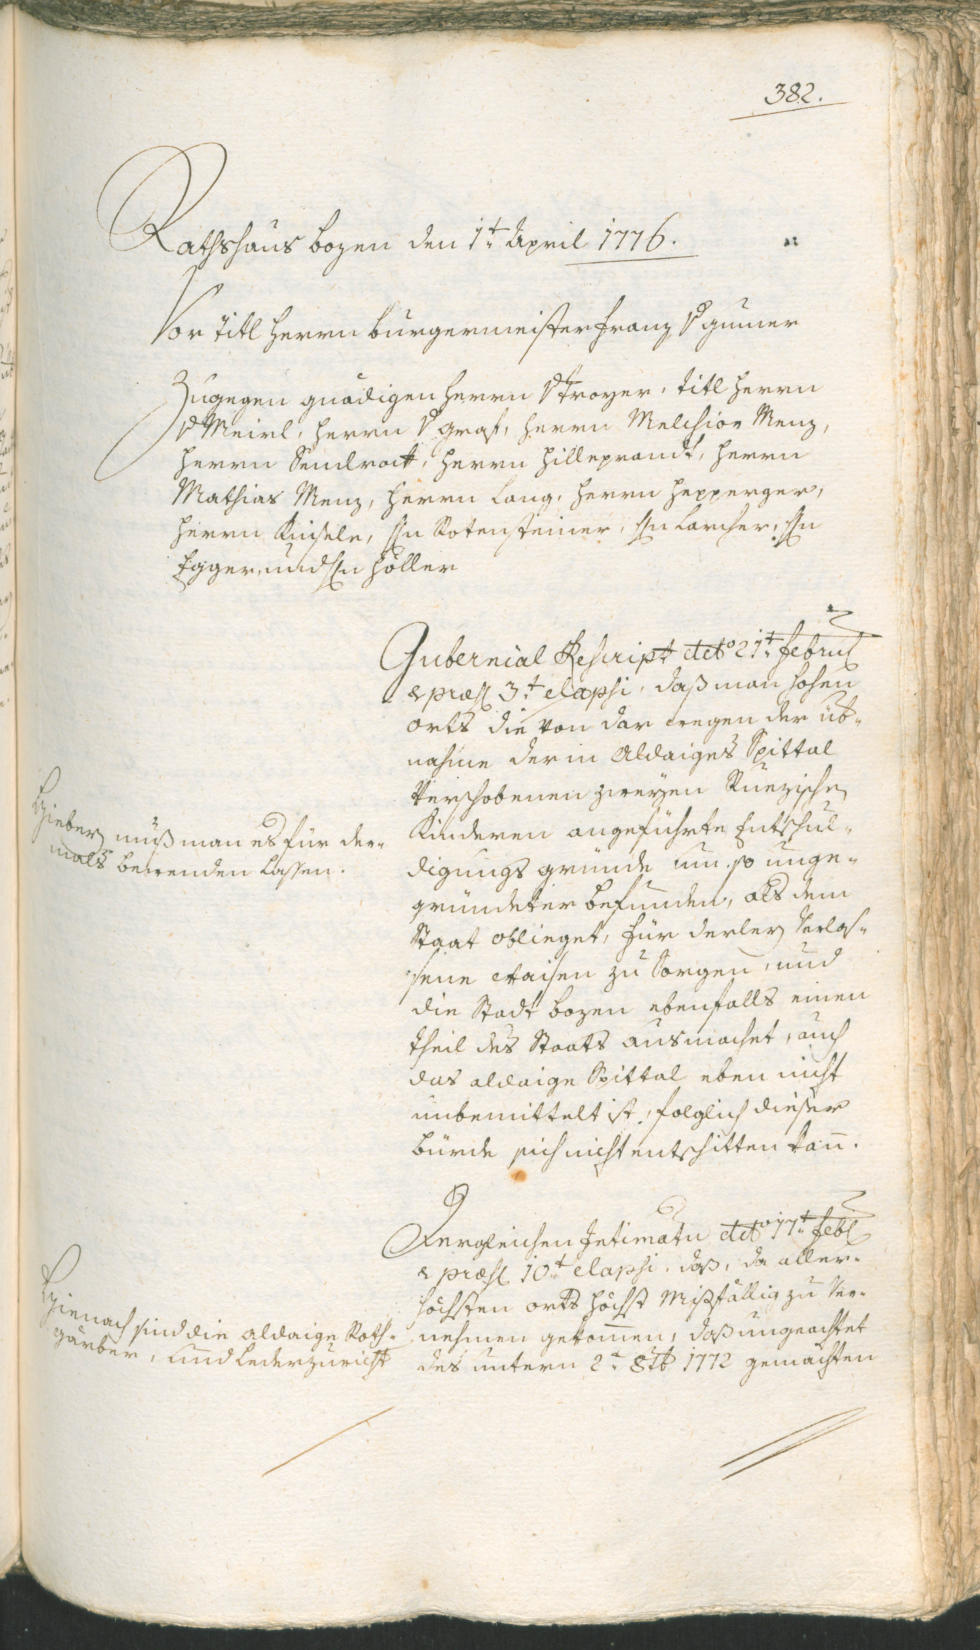 382.
Rathshaus Bozen den 1t April 1776.
Vor Titl Herrn Burgermeister Franz v Gumer
Zugegen gnädigen Herrn v Troyer, Titl Herrn
v Meirl, Herrn v Graf, Herrn Melchior Menz,
Herrn Sendroit, Herrn Hilleprandt, Herrn
Mathias Menz, Herrn Lang, Herrn Hepperger,
Herrn Kinsele, Hn Rotensteiner, Hn Larcher, Hn
Egger, und Hn Höller
Gubernial Rescript dtto 21t Febru
& præs 3t elapsi, daß man hohen
orts die von dar wegen der üb-
nahme der in Aldaiges Spittal
verschobenen zweyen Kinzische
Kinderen angeführte Entschul-
digungs gründe um so unge-
gründeter befunden, als dem
Staat oblieget, für derley Verlas-
sene Waisen zu Sorgen, und
die Stadt Bozen ebenfalls einen
theil des Staats ausmachet, auch
das aldaige Spittal eben nicht
unbemittelt ist, folglich dieser
bürde sich nicht entschitten kann.
Hieber muß man es für der-
mals bewenden Lassen.
Dergleichen Intimatum dtto 17t Feb
& præs 10t elapsi, daß, da aller-
höchsten orts höchst Mißfällig zu Ver-
nehmen gekommen, daß ungeachtet
des untern 2t 8tb 1772 gemachten
Hienach sind die aldaige Roth-
gärber, und Lederzuricht